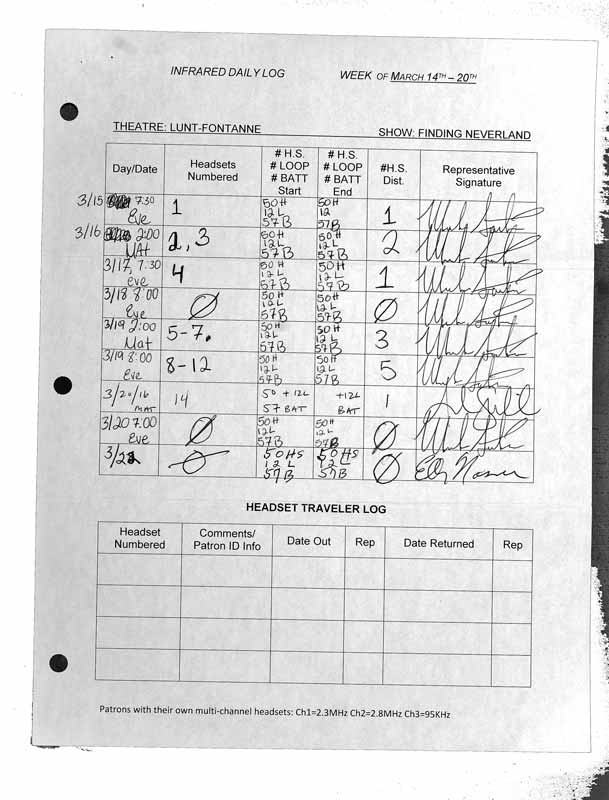 INFRARED DAILY LOG WEEK OF MARCH 14TH – 20TH
THEATRE: LUNT-FONTANNE SHOW: FINDING NEVERLAND
Day/Date Headsets Numbered # H.S. # LOOP # BATT Start # H.S. # LOOP # BATT End #H.S. Dist. Representative Signature
3/15 7:30 Eve 1 50H 12L 57B 50H 12 57B 1
3/16 2:00 MAT 2, 3 50H 12L 57B 50H 12L 57B 2
3/17, 7:30 eve 4 50H 12L 57B 50H 12L 57B 1
3/18 8:00 Eve Ø 50H 12L 57B 50H 12L 57B Ø
3/19 2:00 Mat 5-7. 50H 12L 57B 50H 12L 57B 3
3/19 8:00 Eve 8-12 50H 12L 57B 50H 12L 57B 5
3/20/16 MAT 14 50 + 12L 57 BAT +12L BAT 1
3/20 7:00 Eve Ø 50H 12L 57B 50H 12L 57B Ø
3/22 Ø 50HS 12L 57B 50HS 12L 57B Ø
HEADSET TRAVELER LOG
Headset Numbered Comments/ Patron ID Info Date Out Rep Date Returned Rep
Patrons with their own multi-channel headsets: Ch1=2.3MHz Ch2=2.8MHz Ch3=95KHz